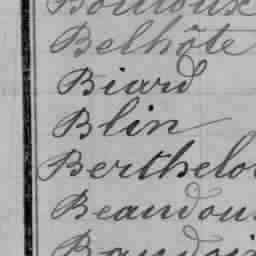 Boutoux
Belhôte
Biard
Blin
Berthelo
Beaudou
Baudoi